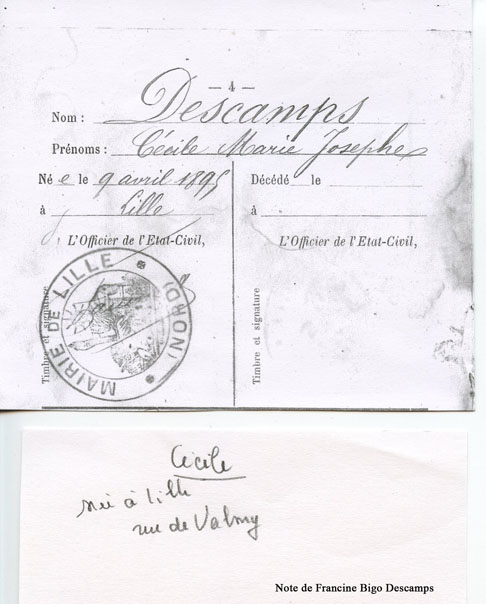 — 4 —
Nom : Descamps
Prénoms : Cécile Marie Josephe
Né e le 9 avril 1895
à Lille
L'Officier de l'Etat-Civil,
Timbre et signature
MAIRIE DE LILLE (NORD)
Décédé le
à
L'Officier de l'Etat-Civil,
Timbre et signature
Cécile
née à Lille
rue de Valmy
Note de Francine Bigo Descamps